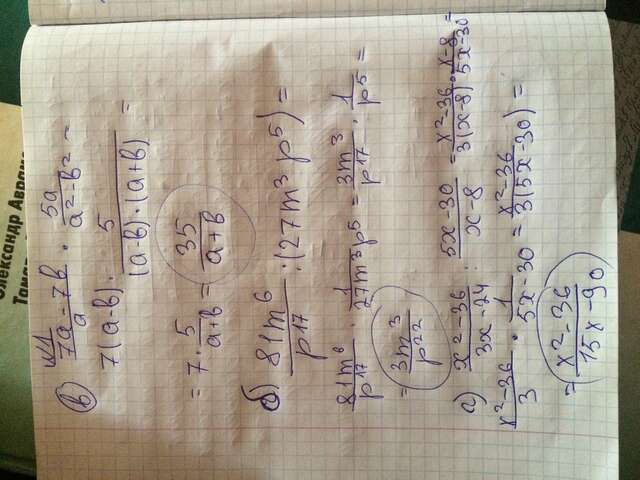 Олександр
№1
в) (7a - 7b)/a · 5a/(a² - b²) =
7(a-b) · 5/((a-b)·(a+b)) =
= 7 · 5/(a+b) = 35/(a+b)
б) 81m⁶/p¹⁷ : (27m³ p⁵) =
81m⁶/p¹⁷ · 1/(27m³p⁵) = 3m³/p¹⁷ · 1/p⁵ =
= 3m³/p²²
г) (x² - 36)/(3x - 24) : (5x - 30)/(x - 8) = (x² - 36)/(3(x-8)) · (x-8)/(5x-30) =
(x² - 36)/3 · 1/(5x - 30) = (x² - 36)/(3(5x - 30)) =
= (x² - 36)/(15x - 90)